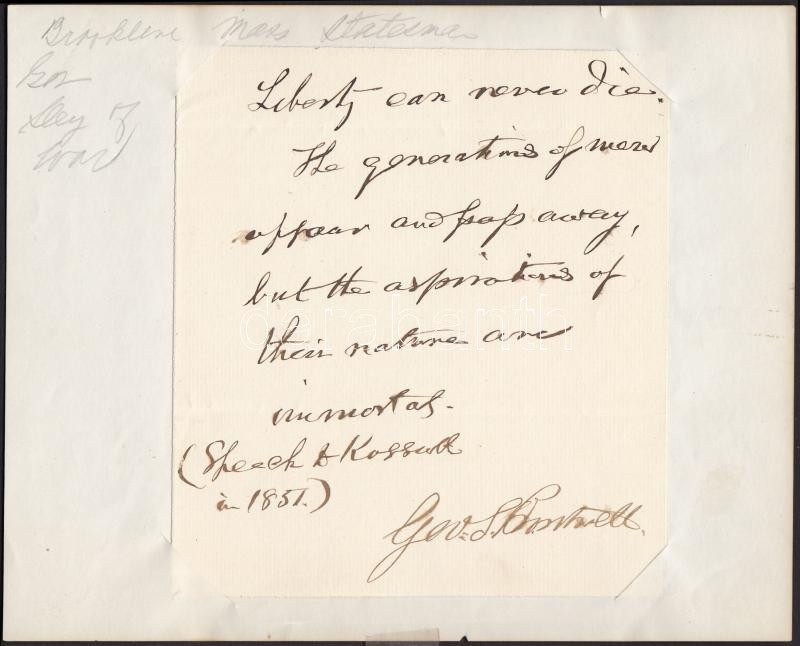 Brookline Mass Statesman
Gov
Secy of
War
Liberty can never die.
The generations of men
appear and pass away,
but the aspirations of
their nature are
immortal.
(Speech to Kossuth
in 1851.)
Geo. S. Boutwell.
darabanth